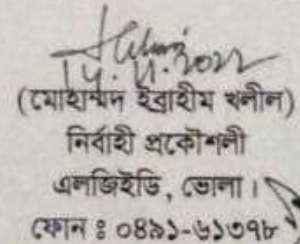 14.11.2022
(মোহাম্মদ ইব্রাহীম খলীল)
নির্বাহী প্রকৌশলী
এলজিইডি, ভোলা।
ফোন ঃ ০৪৯১-৬১৩৭৮